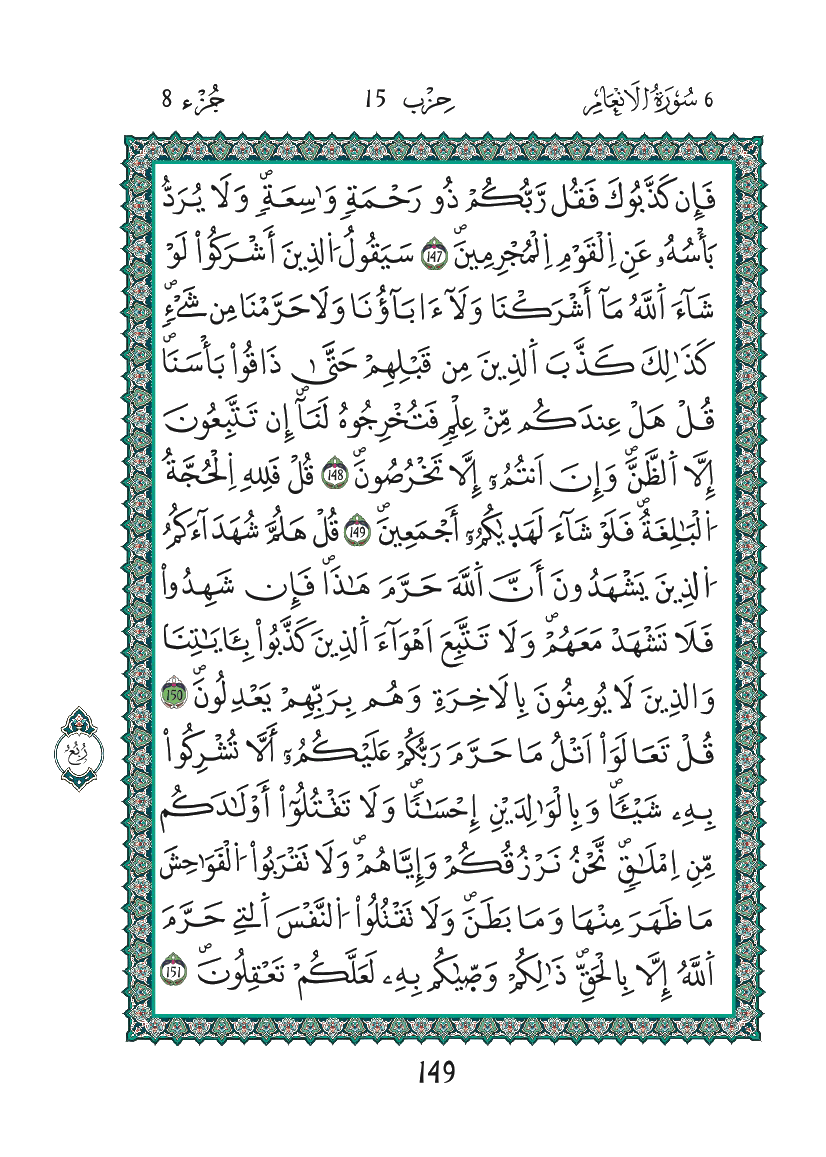 6 سُورَةُ الَانْعَامِ
حِزْب 15
جُزْء 8
فَإِن كَذَّبُوكَ فَقُل رَّبُّكُمْ ذُو رَحْمَةٍ وَٰسِعَةٍۖ وَلَا يُرَدُّ
بَأْسُهُۥ عَنِ اِ۬لْقَوْمِ اِ۬لْمُجْرِمِينَۖ 147 سَيَقُولُ اُ۬لذِينَ أَشْرَكُواْ لَوْ
شَآءَ اَ۬للَّهُ مَآ أَشْرَكْنَا وَلَآ ءَابَآؤُنَا وَلَا حَرَّمْنَا مِن شَےْءٖۖ
كَذَٰلِكَ كَذَّبَ اَ۬لذِينَ مِن قَبْلِهِمْ حَتَّىٰ ذَاقُواْ بَأْسَنَاۖ
قُلْ هَلْ عِندَكُم مِّنْ عِلْمٖ فَتُخْرِجُوهُ لَنَآۖ إِن تَتَّبِعُونَ
إِلَّا اَ۬لظَّنَّۖ وَإِنَ اَنتُمُۥٓ إِلَّا تَخْرُصُونَۖ 148 قُلْ فَلِلهِ اِ۬لْحُجَّةُ
اُ۬لْبَٰلِغَةُۖ فَلَوْ شَآءَ لَهَدٜيٰكُمُۥٓ أَجْمَعِينَۖ 149 قُلْ هَلُمَّ شُهَدَآءَكُمُ
اُ۬لذِينَ يَشْهَدُونَ أَنَّ اَ۬للَّهَ حَرَّمَ هَٰذَاۖ فَإِن شَهِدُواْ
فَلَا تَشْهَدْ مَعَهُمْۖ وَلَا تَتَّبِعَ اَهْوَآءَ اَ۬لذِينَ كَذَّبُواْ بِـَٔايَٰتِنَا
وَالذِينَ لَا يُومِنُونَ بِالَاخِرَةِ وَهُم بِرَبِّهِمْ يَعْدِلُونَۖ 150
قُلْ تَعَالَوَاْ اَتْلُ مَا حَرَّمَ رَبُّكُمْ عَلَيْكُمُۥٓ أَلَّا تُشْرِكُواْ
بِهِۦ شَيْـٔاٗۖ وَبِالْوَٰلِدَيْنِ إِحْسَٰناٗۖ وَلَا تَقْتُلُوٓاْ أَوْلَٰدَكُم
مِّنِ اِمْلَٰقٖۖ نَّحْنُ نَرْزُقُكُمْ وَإِيَّاهُمْۖ وَلَا تَقْرَبُواْ اُ۬لْفَوَٰحِشَ
مَا ظَهَرَ مِنْهَا وَمَا بَطَنَۖ وَلَا تَقْتُلُواْ اُ۬لنَّفْسَ اَ۬لتِے حَرَّمَ
اَ۬للَّهُ إِلَّا بِالْحَقِّۖ ذَٰلِكُمْ وَصّ۪يٰكُم بِهِۦ لَعَلَّكُمْ تَعْقِلُونَۖ 151
رُبُع
149